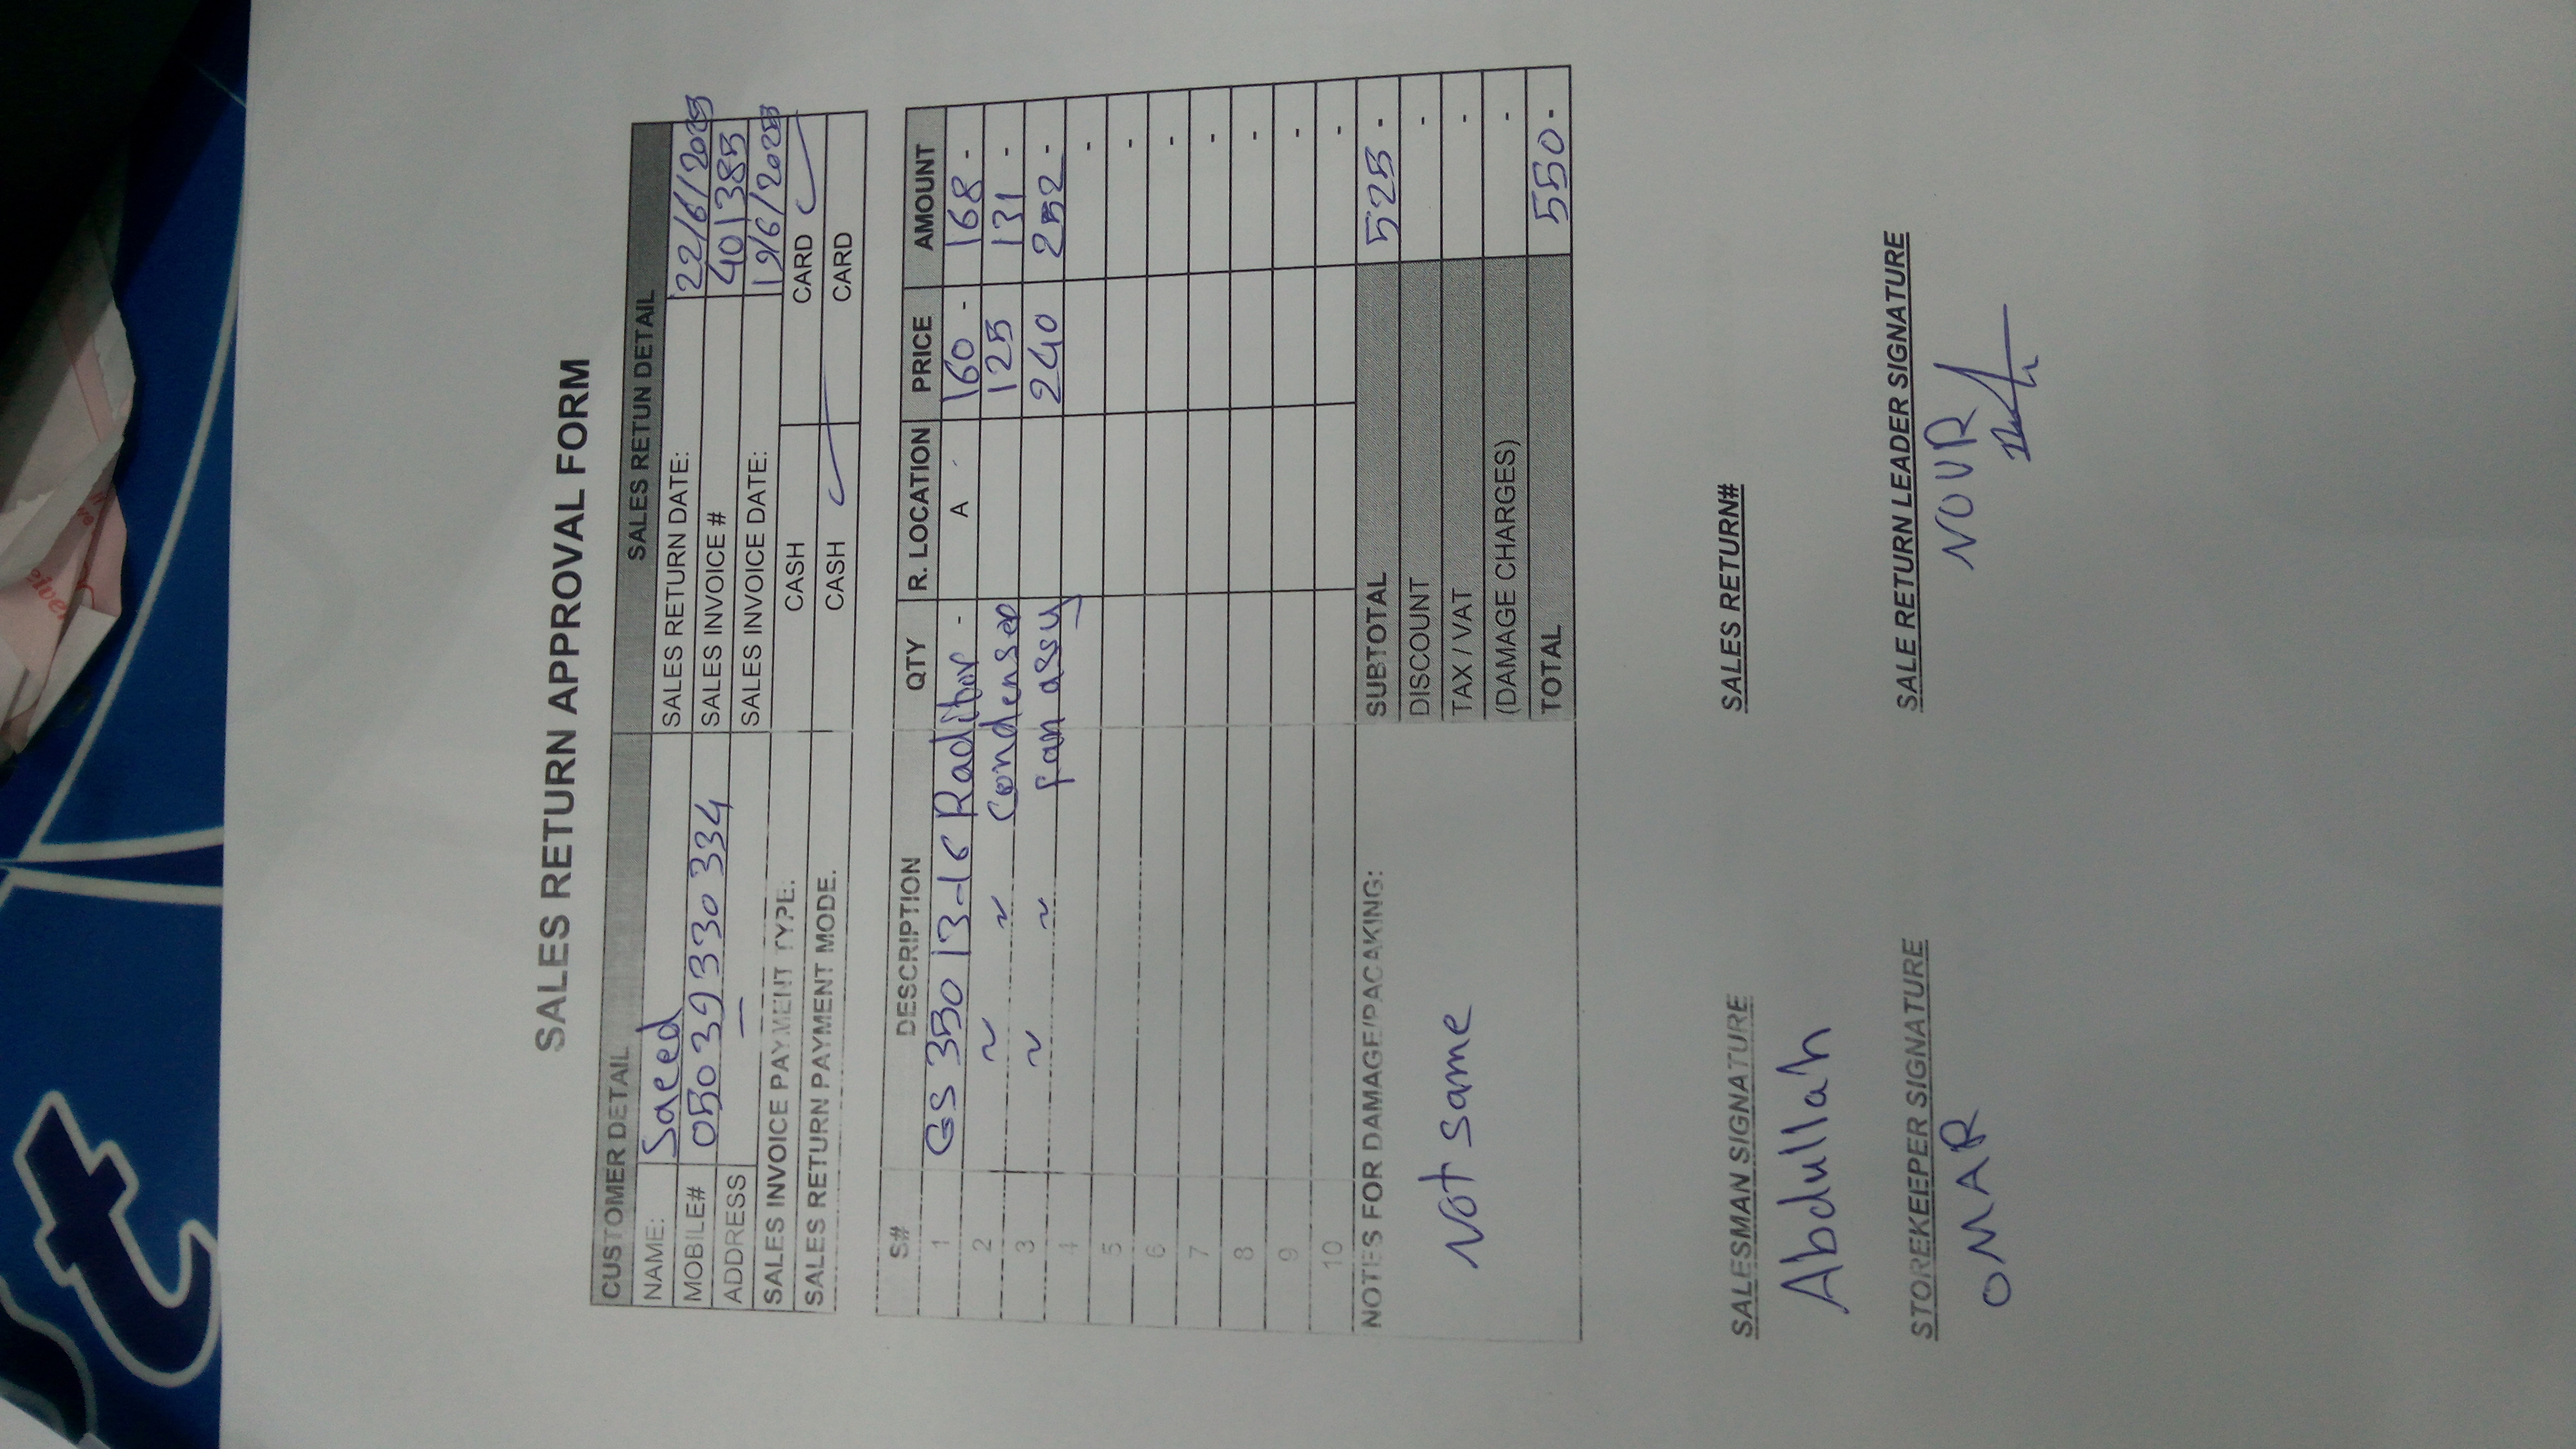 SALES RETURN APPROVAL FORM
CUSTOMER DETAIL SALES RETUN DETAIL
NAME: Saeed SALES RETURN DATE: 22/6/2025
MOBILE# 050 39 330 334 SALES INVOICE # 401385
ADDRESS — SALES INVOICE DATE: 19/6/2025
SALES INVOICE PAYMENT TYPE. CASH CARD ✓
SALES RETURN PAYMENT MODE. CASH ✓ CARD
S# DESCRIPTION QTY R. LOCATION PRICE AMOUNT
1 GS 350 13-16 Raditor - A 160 - 168 -
2 ~ ~ Condenser 125 131 -
3 ~ ~ fan assy 240 252 -
4 -
5 -
6 -
7 -
8 -
9 -
10 -
NOTES FOR DAMAGE/PACAKING: SUBTOTAL 525 -
DISCOUNT -
Not same TAX / VAT -
(DAMAGE CHARGES) -
TOTAL 550 -
SALESMAN SIGNATURE SALES RETURN#
Abdullah
STOREKEEPER SIGNATURE SALE RETURN LEADER SIGNATURE
OMAR NOUR